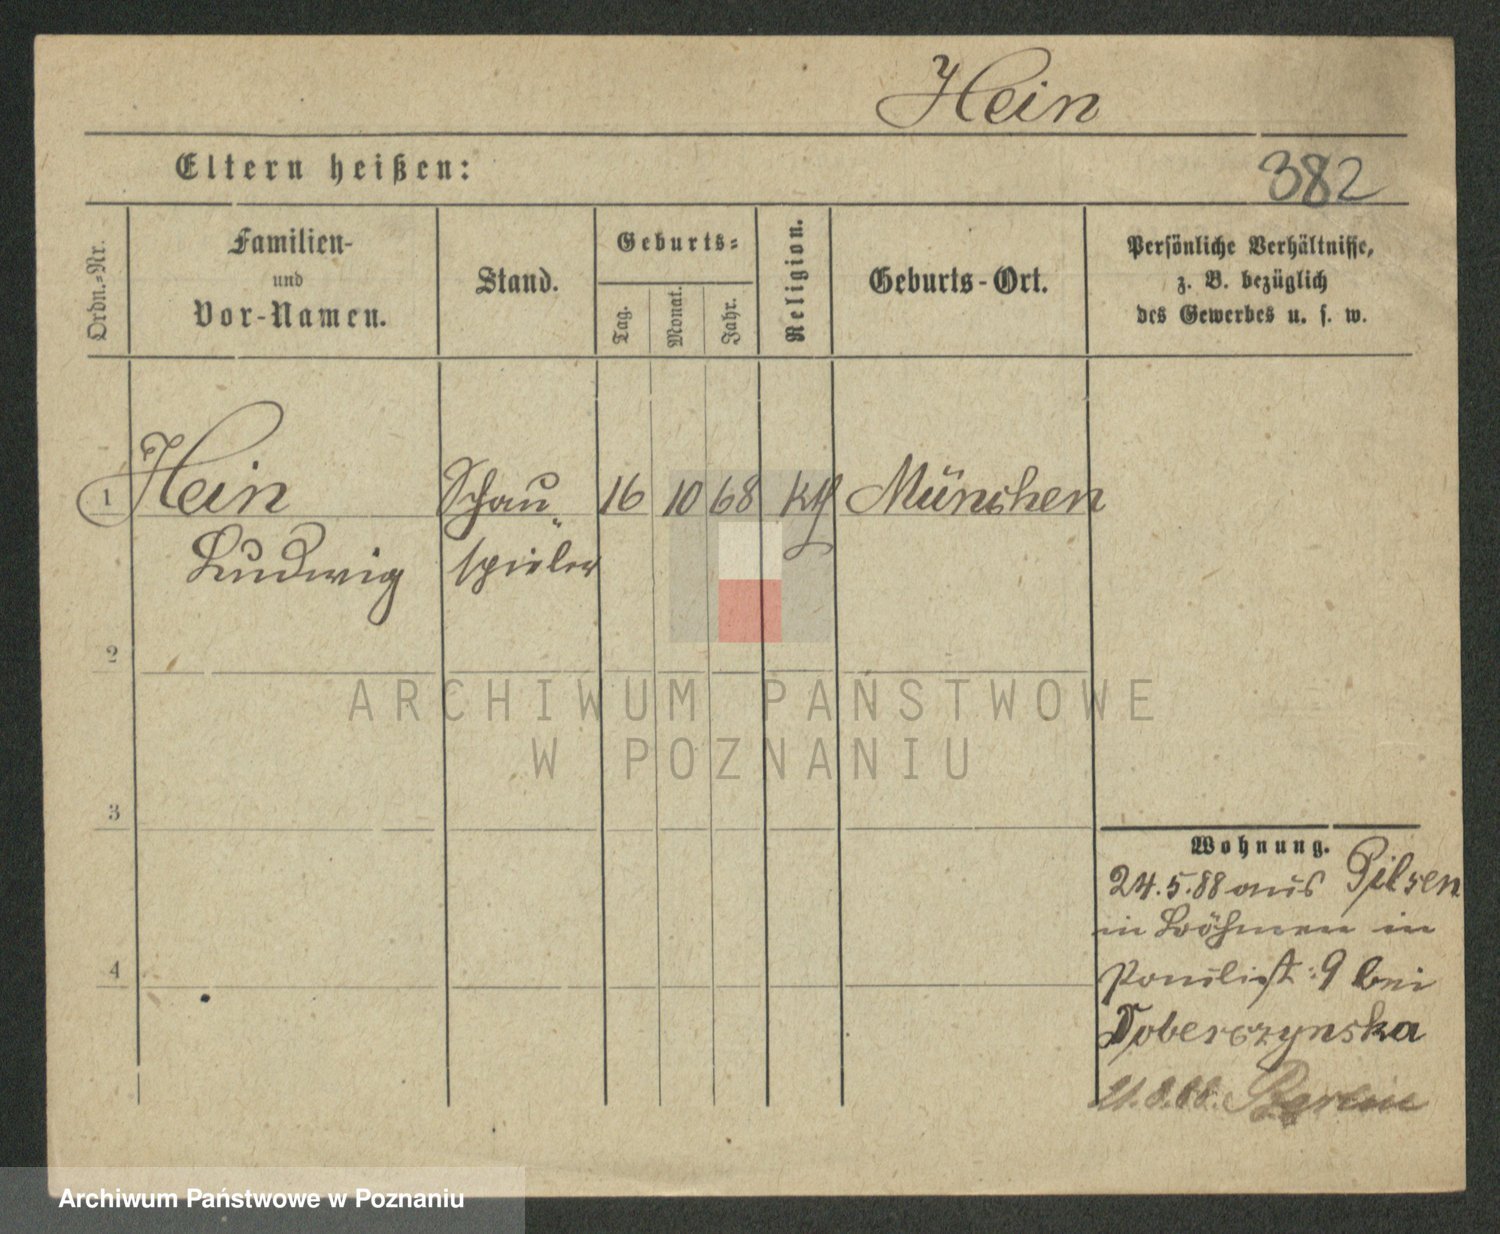 Hein
Eltern heißen:
382
Ordn.-Nr.
Familien-
und
Vor-Namen.
Stand.
Geburts-
Tag.
Monat.
Jahr.
Religion.
Geburts-Ort.
Persönliche Verhältnisse,
z. B. bezüglich
des Gewerbes u. s. w.
1 Hein Schau 16 10 68 kth München
Ludwig spieler
2
ARCHIWUM PAŃSTWOWE
W POZNANIU
3
Wohnung.
24.5.88 aus Pilsen
in Böhmen in
9 bei
Doberszynska
Berlin
4
Archiwum Państwowe w Poznaniu